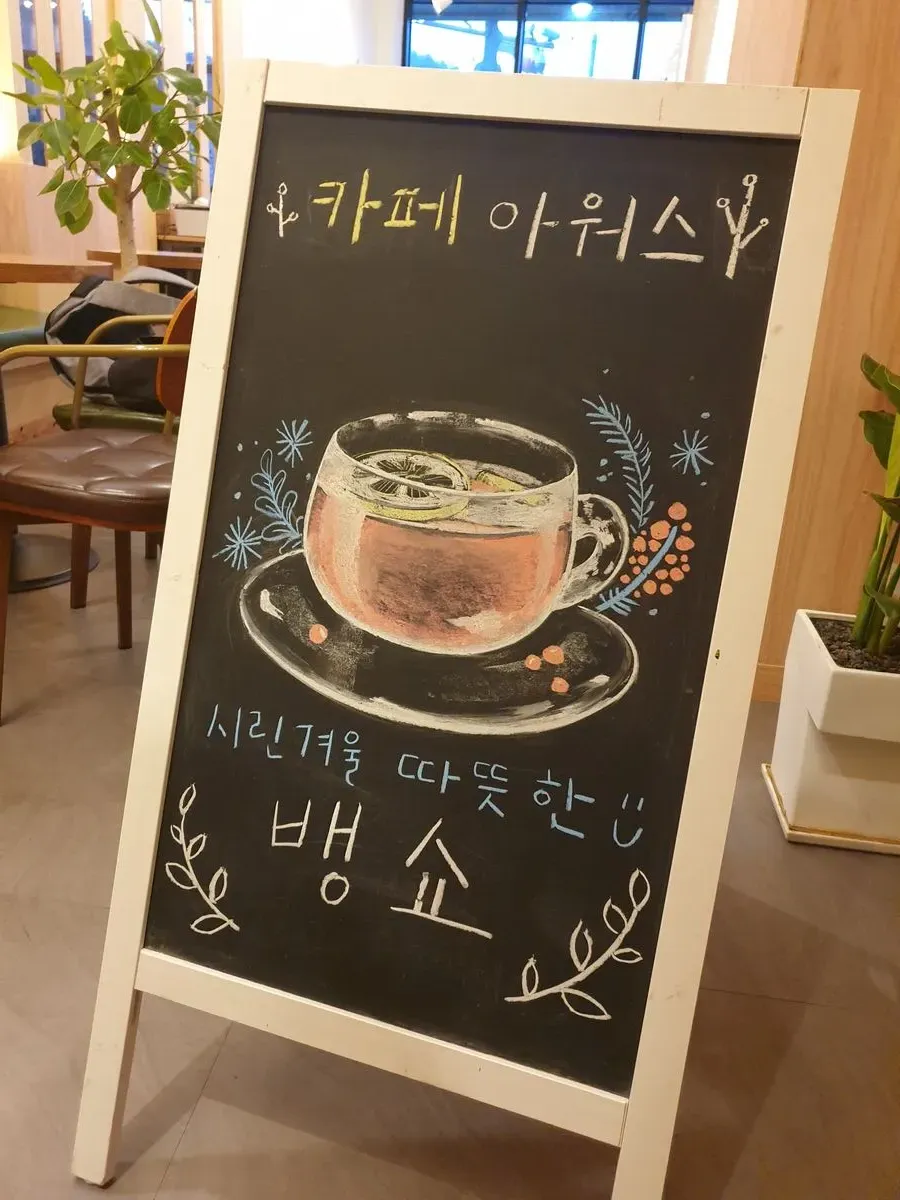 카페 아워스
시린겨울 따뜻한
뱅쇼